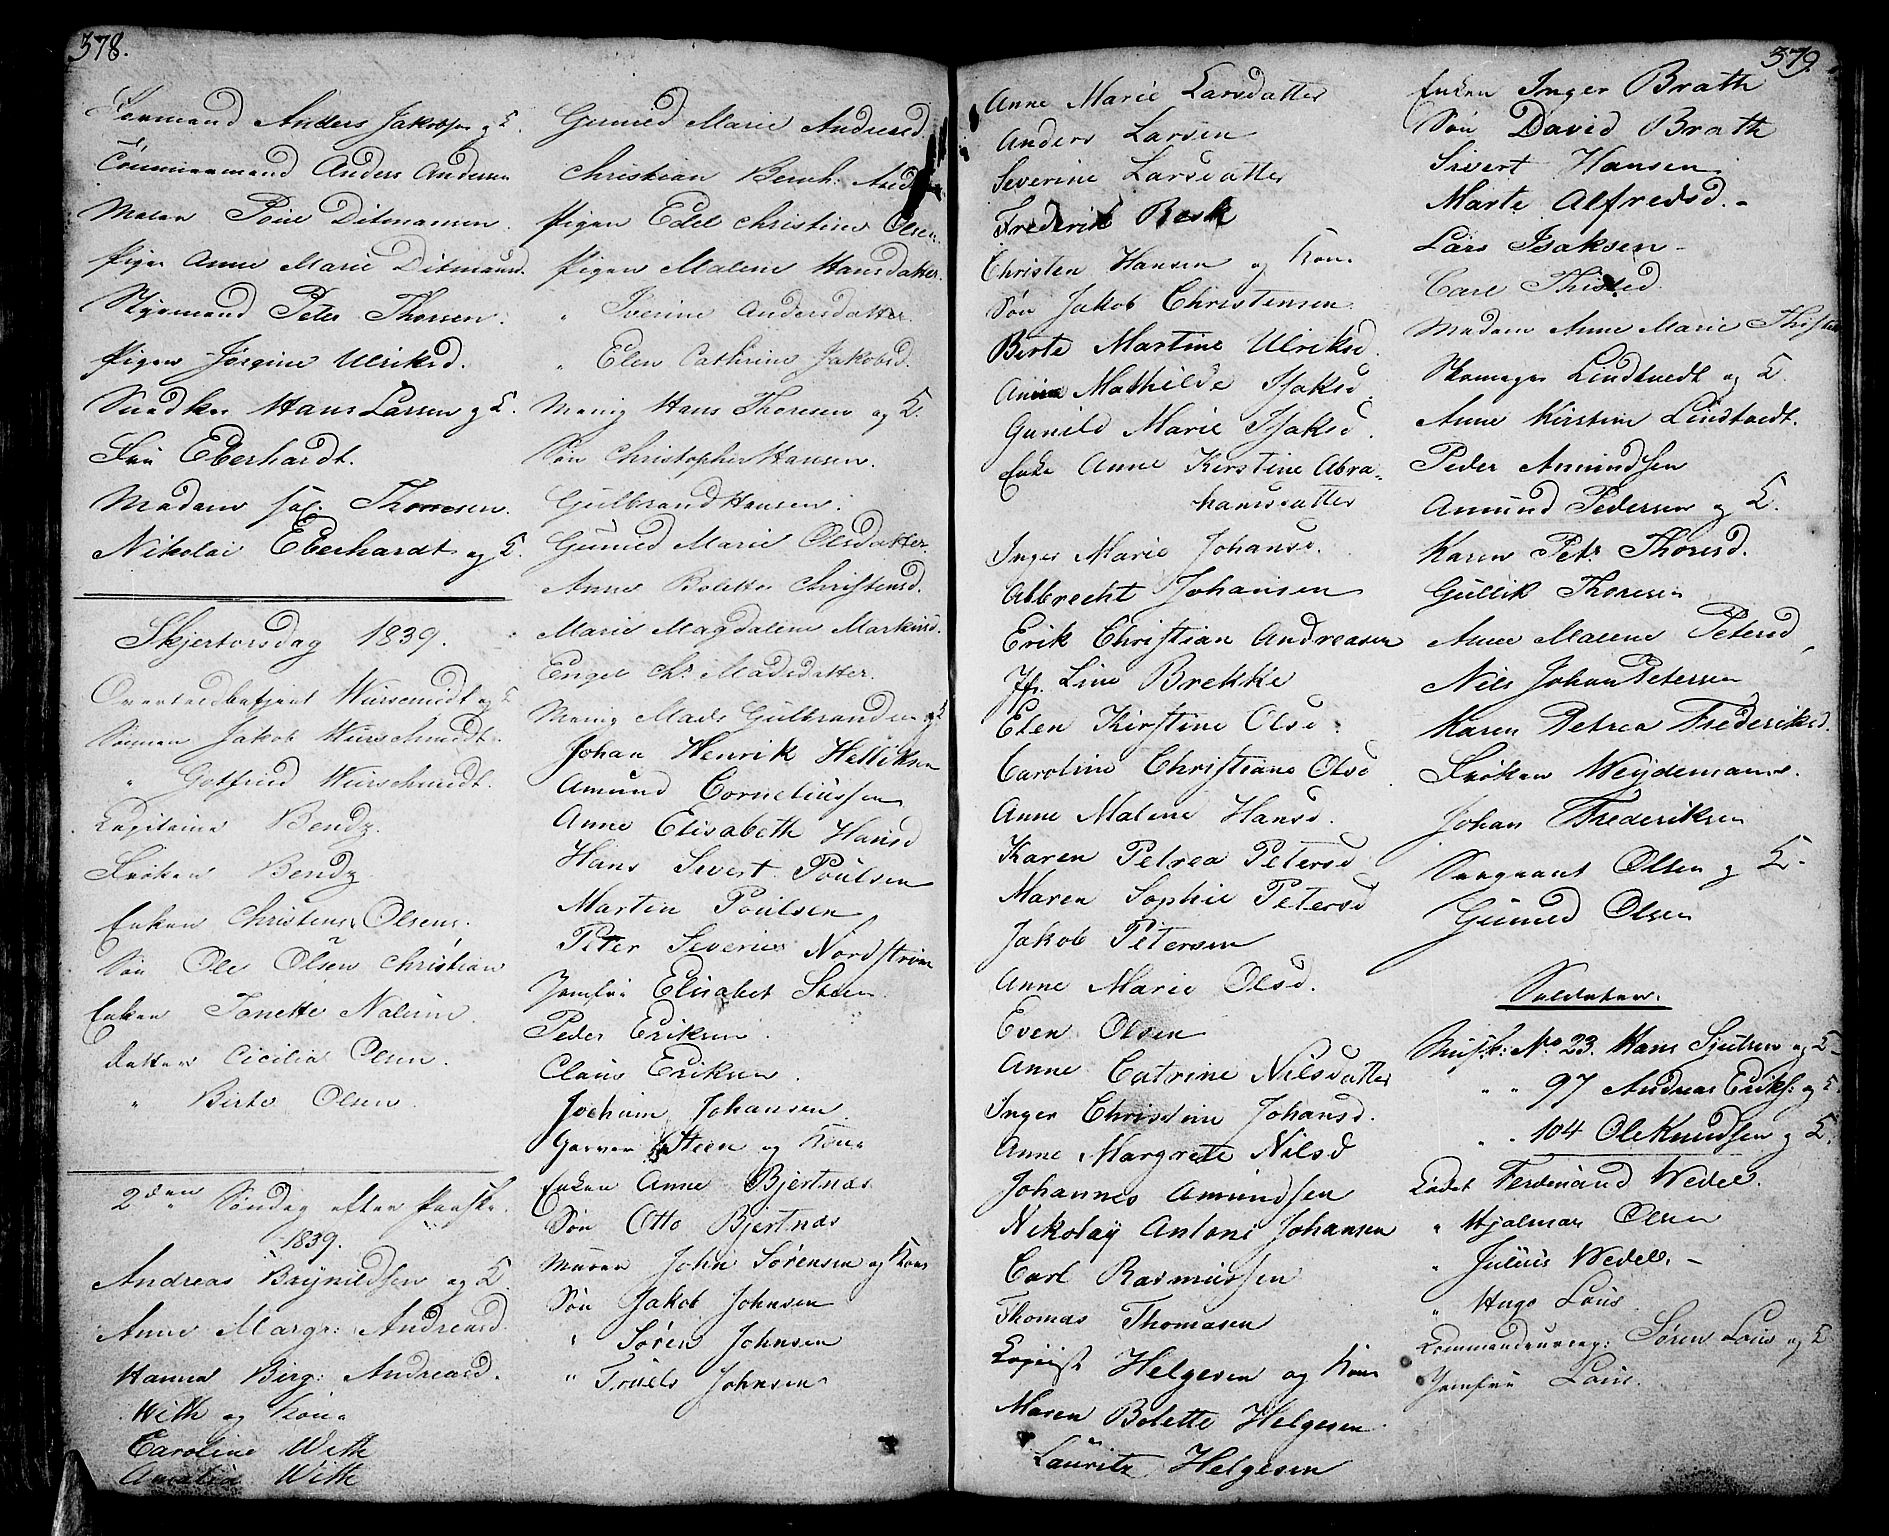 378.
Formand Anders Jakobsen og K.
Tömmermand Anders Andersen
Maler Poul Ditmansen.
Pige Anne Marie Ditmansd.
Styrmand Peter Thorsen.
Pigen Jörgine Ulriksd.
Snedker Hans Larsen og K.
Fru Eberhardt.
Madam sal. Thoresen.
Nikolai Eberhardt og K.
Skjertorsdag 1839.
Overtoldbetjent Wurschmidt og K
Sönnen Jakob Wurschmidt.
" Gotfried Wurschmidt.
Capitaine Bendz.
Fröken Bendz.
Enken Christense Olsens.
Sön Ole Olsen Christian
Enken Janette Nalum.
datter Cicilia Olsen.
" Birte Olsen.
2den Söndag efter Paaske.
1839.
Andreas Brynildsen og K.
Anne Margr: Andreasd.
Hanna Birg: Andreasd.
With og Kone
Caroline With
Amalia With
Gunild Marie Andreasd.
Christian Bernh:
Pigen Edel Christine Olsen.
Pigen Malene Hansdatter.
" Iverine Andersdatter.
" Elen Cathrine Jakobsd.
Menig Hans Thoresen og K.
Sön Christopher Hansen.
Gulbrand Hansen.
Gunild Marie Olsdatter.
Anne Bolette Christensd.
Marie Magdalene Markusd.
Engel Chr. Madsdatter.
Menig Mads Gulbrandsen og K
Johan Henrik Helliksen
Amund Corneliussen
Anne Elisabeth Hansd
Hans Sivert Poulsen
Martin Poulsen
Peter Severin Nordström
Jomfru Elisabet Steen.
Peder Eriksen.
Claus Eriksen.
Jochum Johansen.
Garver Steen og Kone
Enken Anne Bjertnæs
Sön Otto Bjertnæs
Murer John Sørensen og Kone
Sön Jakob Johnsen
" Sören Johnsen
" Truels Johnsen
379.
Anne Marie Larsdatter
Anders Larsen
Severine Larsdatter
Frederik Besk
Christen Hansen og Kone
Sön Jakob Christensen.
Birte Martine Ulriksd.
Anne Mathilde Isaksd
Gunild Marie Isaksd.
Enke Anne Kirstine Abra-
hamsdatter
Inger Marie Johansd.
Abbrecht Johansen
Erik Christian Andreasen
Jfr. Line Brekke
Elen Kirstine Olsd.
Caroline Christiane Olsd
Anne Malene Hansd.
Karen Petrea Petersd
Maren Sophie Petersd
Jakob Petersen
Anne Marie Olsd.
Even Olsen
Anne Catrine Nilsdatter
Inger Christine Johansd.
Anne Margrete Nilsd
Johannes Amundsen
Nikolay Antoni Johansen
Carl Rasmussen
Thomas Thomasen
Kopist Helgesen og Kone
Maren Bolette Helgesen
Lauritz Helgesen
Enken Inger Brath
Sön David Brath
Sivert Hansen
Marte Alfredsd.
Lars Isaksen
Carl Thisted.
Madam Anne Marie Thisted
Skomager Lindtvedt og K.
Anne Kirstine Lindtvedt.
Peder Amundsen
Amund Pedersen og K.
Karen Petr. Thoresd.
Gullik Thoresen
Anne Malene Petersd
Nils Johan Petersen
Karen Petrea Frederiksd.
Fröken Weydemann.
Johan Frederiksen
Sergeant Olsen og K.
Gunild Olsen
Soldater.
Musk: No 23. Hans Sjulsen og K
" " 97 Andreas Eriks: og K
" " 104 Ole Knudsen og K.
Cadet Ferdinand Wedel.
" Hjalmar Olsen
" Julius Wedel.
" Hugo Lous.
Commandeurcap: Sören Lous og K
Jomfru Lous.